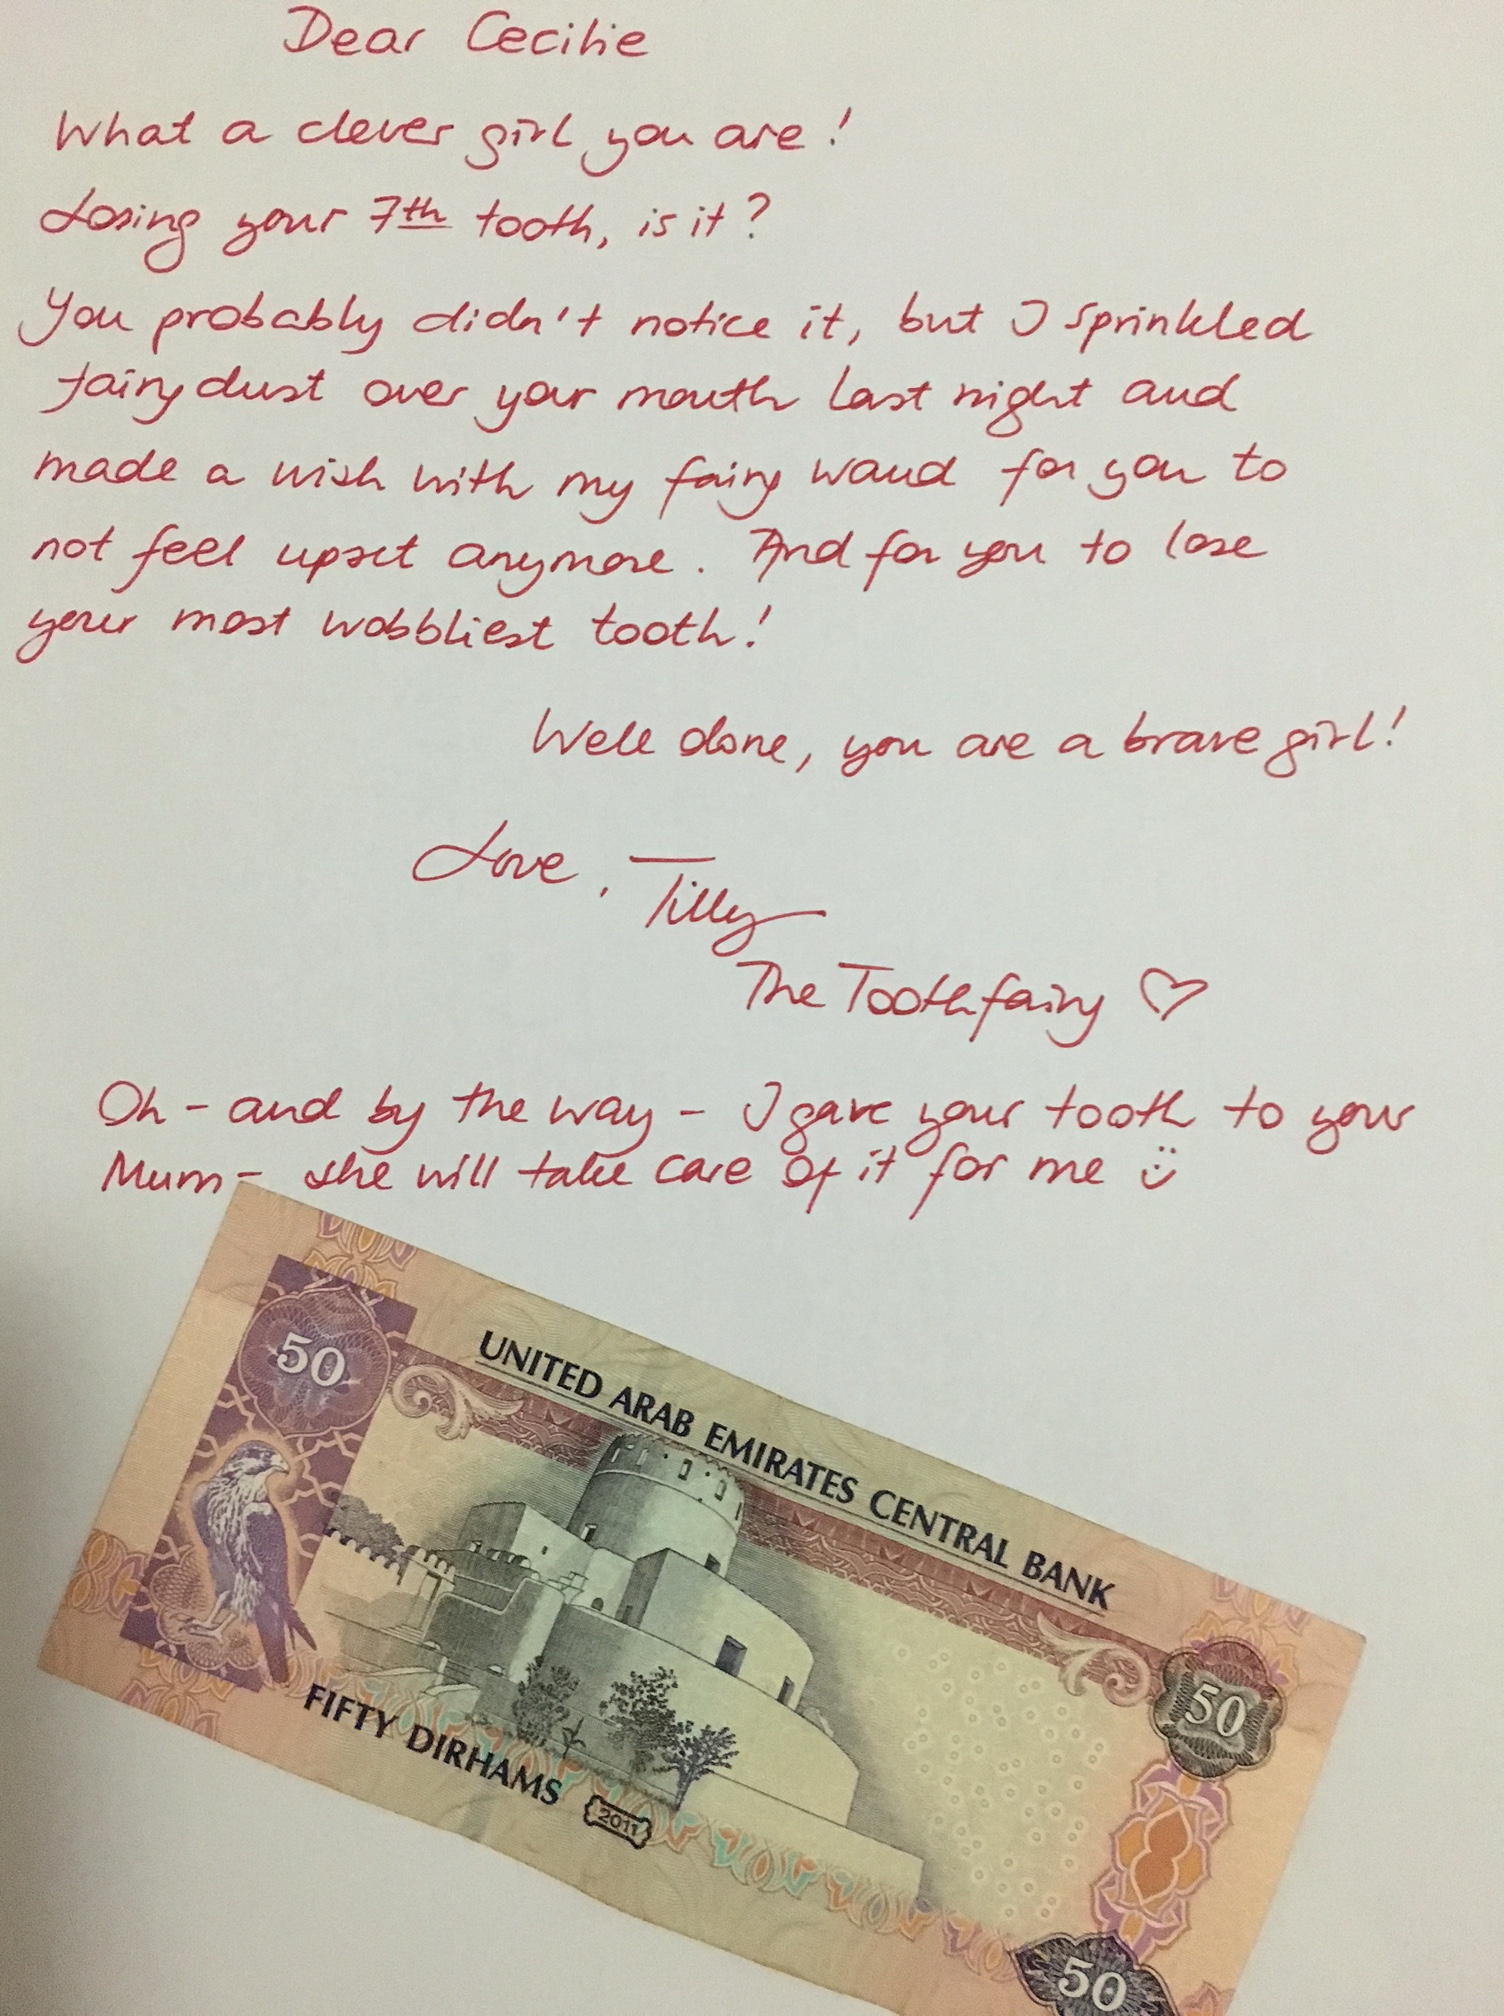 Dear Cecilie
What a clever girl you are!
Losing your 7th tooth, is it?
You probably didn't notice it, but I sprinkled
fairydust over your mouth last night and
made a wish with my fairy wand for you to
not feel upset anymore. And for you to lose
your most wobbliest tooth!
Well done, you are a brave girl!
Love, Tilly
The Toothfairy ♡
Oh - and by the way - I gave your tooth to your
Mum - she will take care of it for me :)
50
UNITED ARAB EMIRATES CENTRAL BANK
FIFTY DIRHAMS
2011
50
50